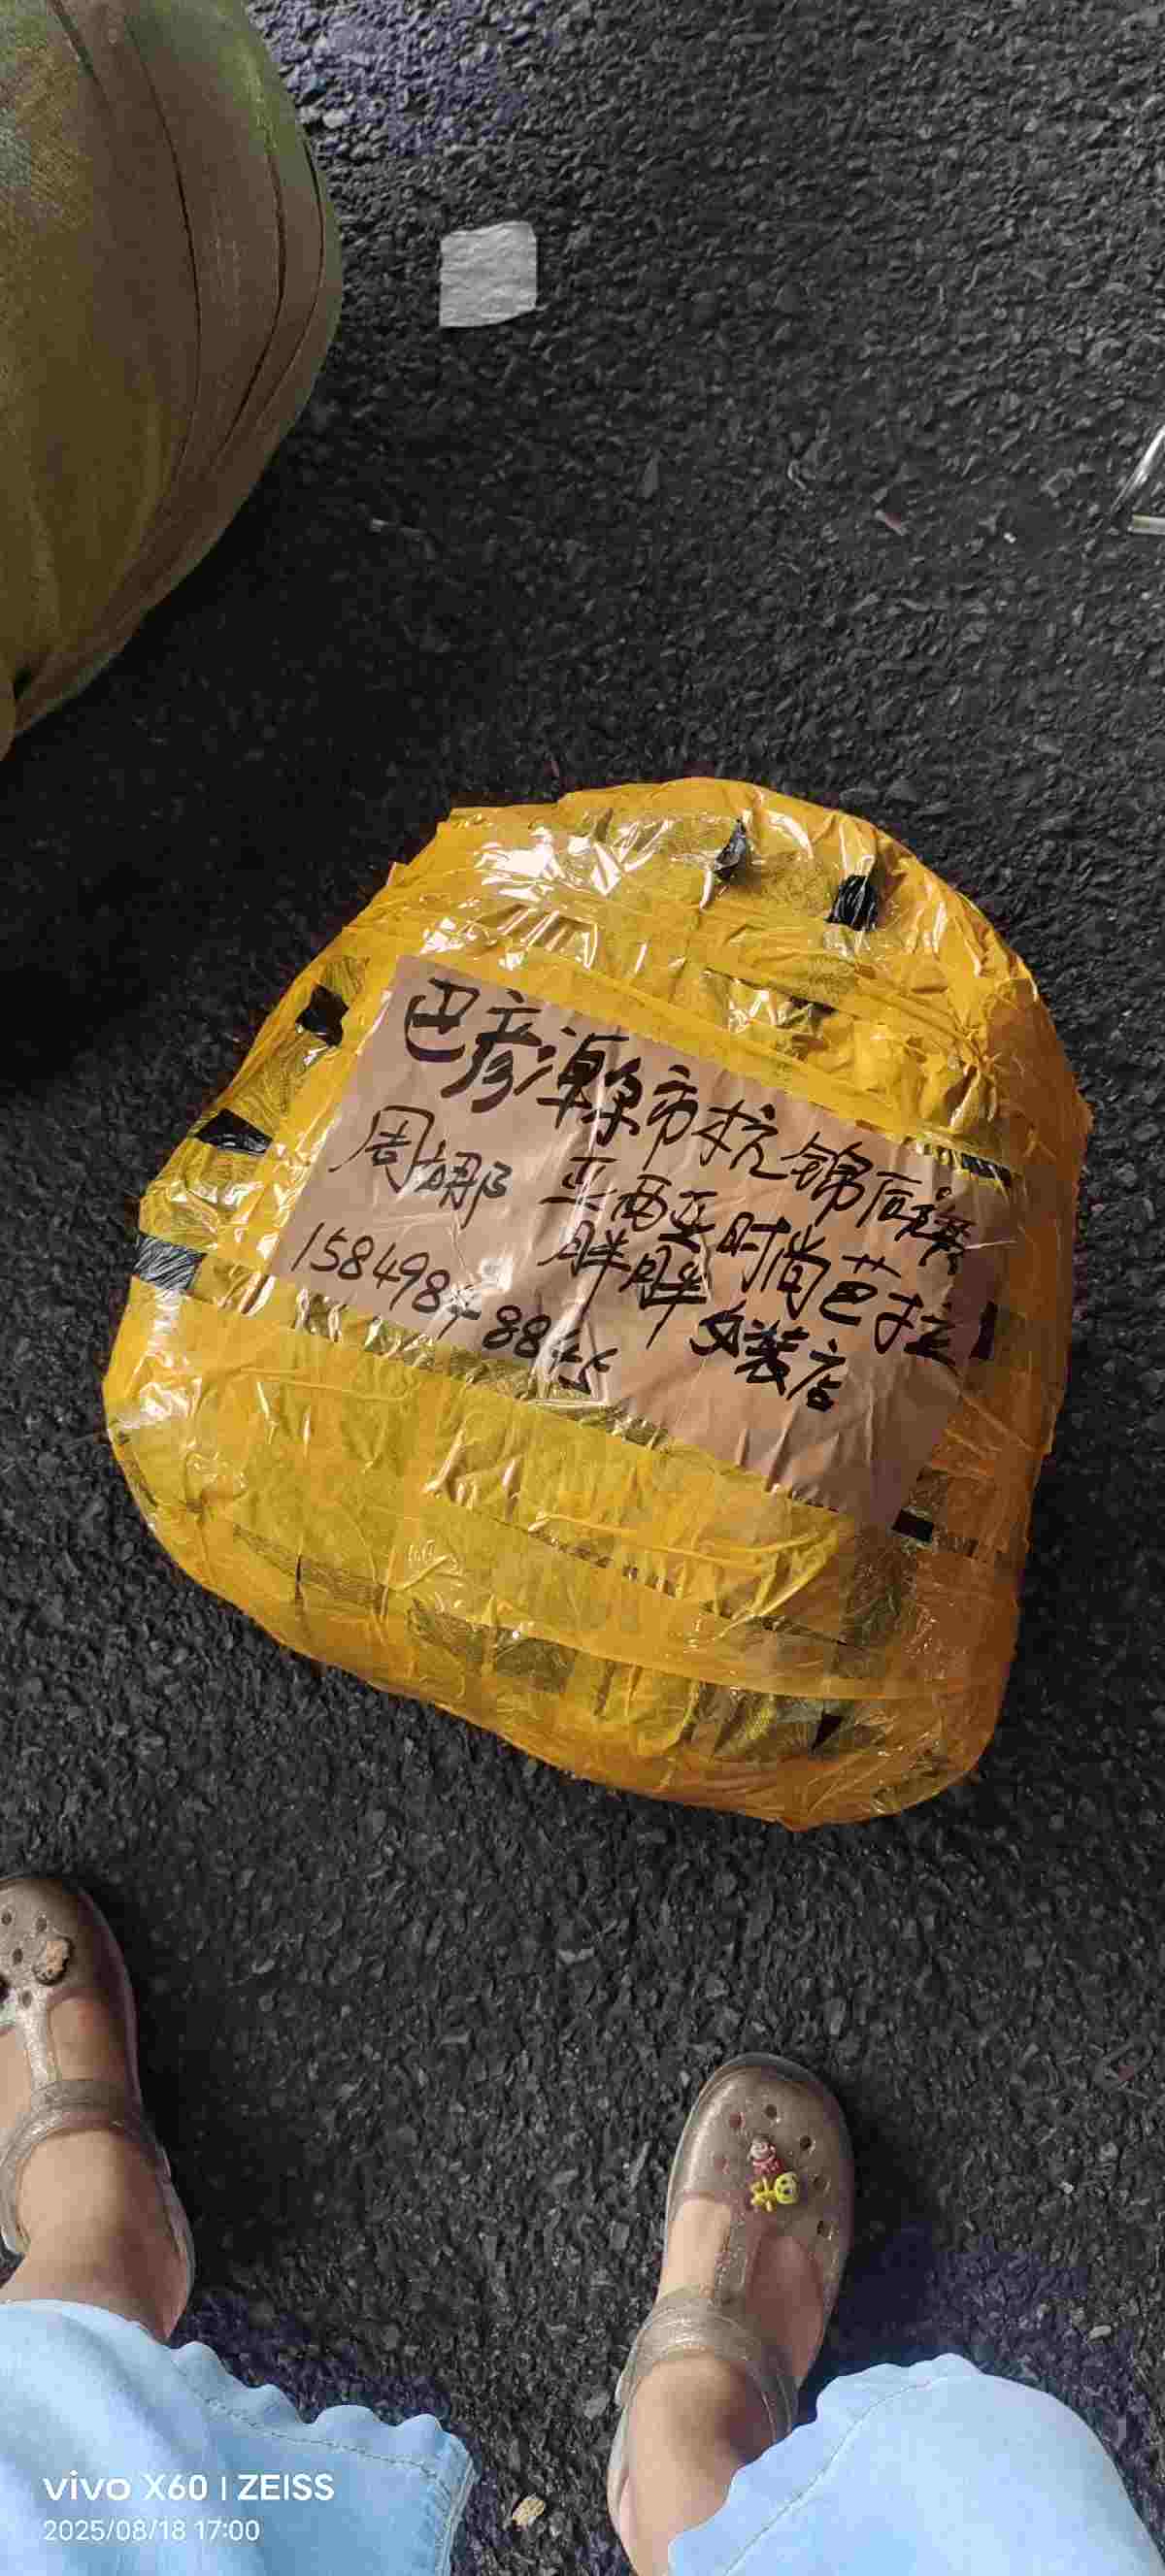 巴彦淖尔市杭锦后旗
周娜 亚西亚时尚芭拉
胖胖女装店
15849848845
vivo X60 | ZEISS
2025/08/18 17:00